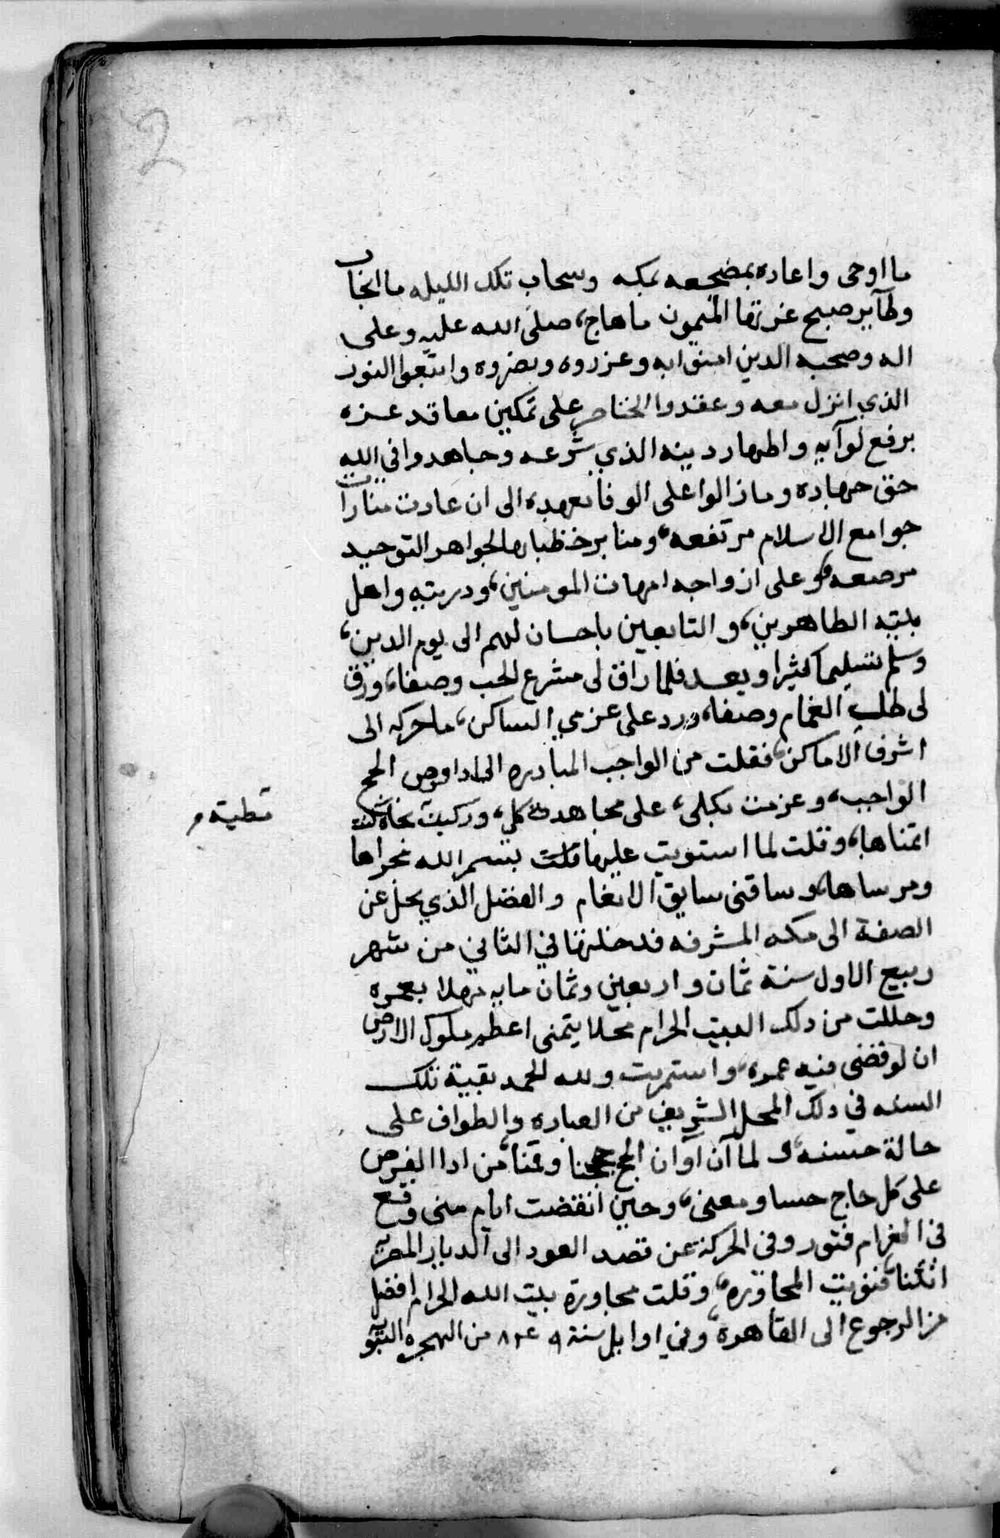 2
ما اوحى واعاده بمضجعه بمكه وسحاب تلك الليله ما انجاب
وطآير صبح غرتها الميمون ما هاج، صلى الله عليه وعلى
اله وصحبه الدين امنوا به وعزروه ونصروه واتبعوا النور
الذي انزل معه وعقدوا الخناصر على تمكين معاقد عزه
برفع لوآيه واظهار دينه الذي شرعه وجاهدوا في الله
حق جهاده وما زالوا على الوفا بعهده الى ان عادت منارات
جوامع الاسلام مرتفعه، ومنابر خطبابها لجواهر التوحيد
مرصعه، وعلى ازواجه امهات المومنين، ودريته واهل
بيته الطاهرين، والتابعين باحسان لهم الى يوم الدين،
وسلم تسليما كثيرا وبعد فلما راق لى مشرع الحب وصفا، ورق
لى طلب الغمام وضفا، ورد على عزمي الساكن، ما حركه الى
اشرف الاماكن، فقلت من الواجب المبادره الى ادا فرض الحج
الواجب، وعزمت بكلى، على مجاهدة كلي، وركبت
مطيته م
اتمناها، وقلت لما استويت عليها قلت بسم الله مجراها
ومرساها، وساقنى سايق الانعام والفضل الذي يجل عن
الصفة الى مكه المشرفه فدخلتها في الثاني من شهر
ربيع الاول سنة ثمان واربعين وثمان مايه مهلا بعمره
وحللت من دلك البيت الحرام محلا يتمنى اعظم ملوك الارض
ان لو قضى فيه عمره، واستمريت ولله الحمد بقية تلك
السنه في دلك المحل الشريف من العباده والطواف على
حالة حسنه، ولما آن آوان الحج حججنا وقمنا، من ادا الفرض
على كل حاج حسا ومعنى، وحين انقضت ايام منى وقع
في الغرام فتور وفى الحركة عن قصد العود الى الديار المصريه
انثنا، فنويت المجاوره، وقلت مجاورة بيت الله الحرام افضل
من الرجوع الى القاهرة، وفي اوايل سنة ٨٤٩ من الهجره النبويه